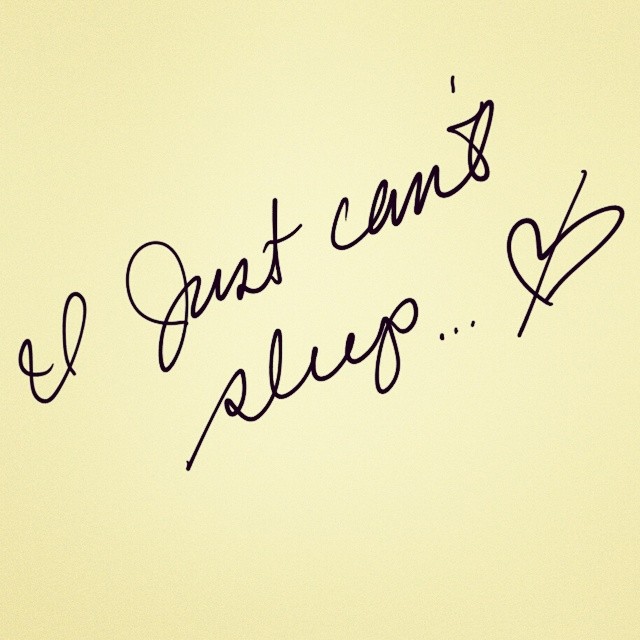 I Just can't
sleep...